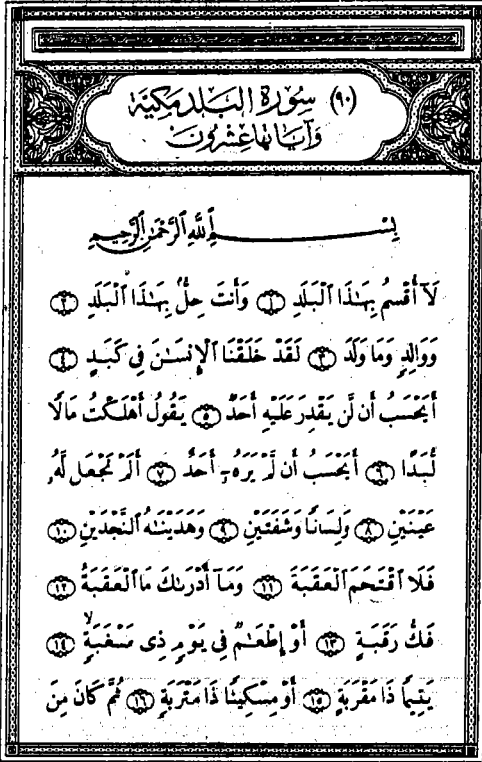 (٩٠) سُورَةُ الْبَلَدِ مَكِّيَّة
وَآيَاتُهَا عِشْرُونَ
بِسْمِ ٱللَّهِ ٱلرَّحْمَٰنِ ٱلرَّحِيمِ
لَآ أُقْسِمُ بِهَٰذَا ٱلْبَلَدِ ١ وَأَنتَ حِلٌّۢ بِهَٰذَا ٱلْبَلَدِ ٢
وَوَالِدٍ وَمَا وَلَدَ ٣ لَقَدْ خَلَقْنَا ٱلْإِنسَٰنَ فِى كَبَدٍ ٤
أَيَحْسَبُ أَن لَّن يَقْدِرَ عَلَيْهِ أَحَدٌ ٥ يَقُولُ أَهْلَكْتُ مَالًا
لُّبَدًا ٦ أَيَحْسَبُ أَن لَّمْ يَرَهُۥٓ أَحَدٌ ٧ أَلَمْ نَجْعَل لَّهُۥ
عَيْنَيْنِ ٨ وَلِسَانًا وَشَفَتَيْنِ ٩ وَهَدَيْنَٰهُ ٱلنَّجْدَيْنِ ١٠
فَلَا ٱقْتَحَمَ ٱلْعَقَبَةَ ١١ وَمَآ أَدْرَىٰكَ مَا ٱلْعَقَبَةُ ١٢
فَكُّ رَقَبَةٍ ١٣ أَوْ إِطْعَٰمٌ فِى يَوْمٍ ذِى مَسْغَبَةٍ ١٤
يَتِيمًا ذَا مَقْرَبَةٍ ١٥ أَوْ مِسْكِينًا ذَا مَتْرَبَةٍ ١٦ ثُمَّ كَانَ مِنَ